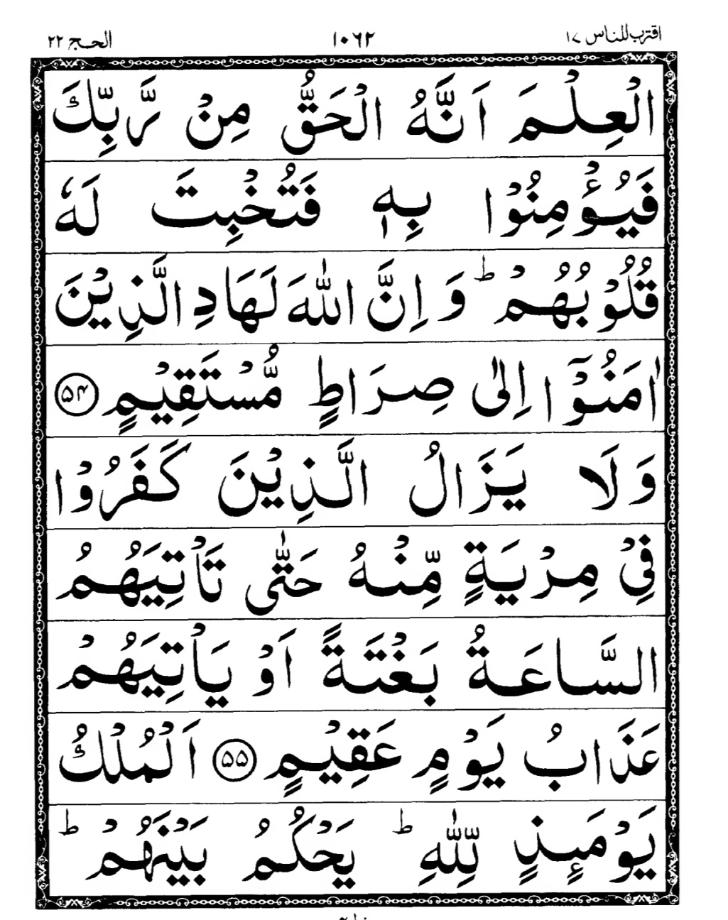 اقترب للناس ١٧ ١٠٦٢ الحج ٢٢
الْعِلْمَ اَنَّهُ الْحَقُّ مِنْ رَّبِّكَ
فَيُؤْمِنُوْا بِهٖ فَتُخْبِتَ لَهٗ
قُلُوْبُهُمْ ؕ وَ اِنَّ اللّٰهَ لَهَادِ الَّذِيْنَ
اٰمَنُوْۤا اِلٰى صِرَاطٍ مُّسْتَقِيْمٍ ۵۴
وَلَا يَزَالُ الَّذِيْنَ كَفَرُوْا
فِيْ مِرْيَةٍ مِّنْهُ حَتّٰى تَاْتِيَهُمُ
السَّاعَةُ بَغْتَةً اَوْ يَاْتِيَهُمْ
عَذَابُ يَوْمٍ عَقِيْمٍ ۵۵ اَلْمُلْكُ
يَوْمَىِٕذٍ لِّلّٰهِ ؕ يَحْكُمُ بَيْنَهُمْ ؕ